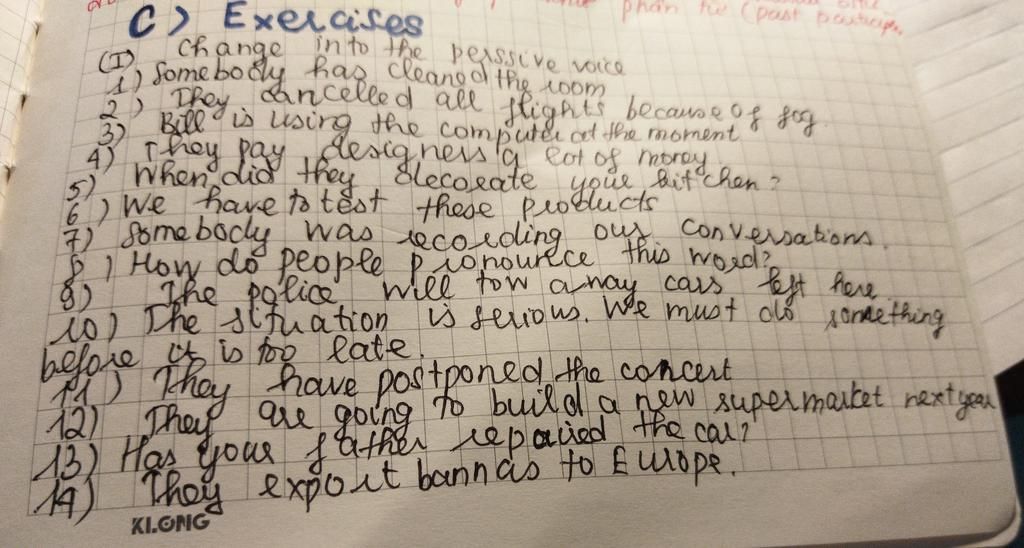 phần từ (past participle
C) Exercises
(I) Change into the perssive voice
1) Somebody has cleaned the room
2) They cancelled all flights because of fog.
3) Bill is using the computer at the moment
4) They pay designers a lot of money
5) When did they decorate your kitchen?
6) We have to test these products
7) Somebody was recording our conversations.
8) How do people pronounce this word?
9) The police will tow away cars left here
10) The situation is serious. We must do something
before it is too late.
11) They have postponed the concert
12) They are going to build a new supermarket next year
13) Has your father repaired the car?
14) They export bannas to Europe.
KLONG